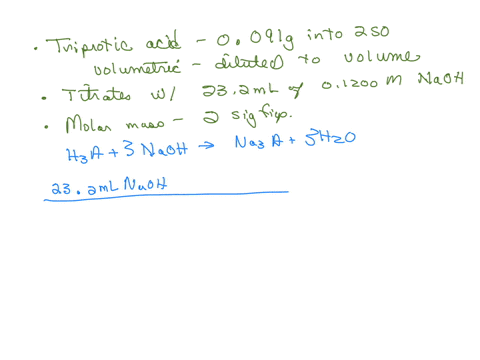 • Triprotic acid - 0.091g into 250
volumetric - diluted to volume
• Titrates w/ 23.2mL of 0.1200 M NaOH
• Molar mass - 2 sig figs.
H₃A + 3 NaOH → Na₃A + 3H₂O
23.2mL NaOH